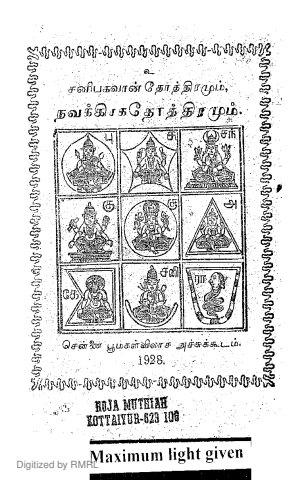 உ
சனிபகவான் தோத்திரமும்,
நவக்கிரகதோத்திரமும்.
பு
சு
சந்
கு
சூ
அ
கே
சனி
ரா
சென்னை பூமகள்விலாச அச்சுக்கூடம்.
1928.
ROJA MUTHIAH
KOTTAIYUR-623 106
Maximum light given
Digitized by RMRL